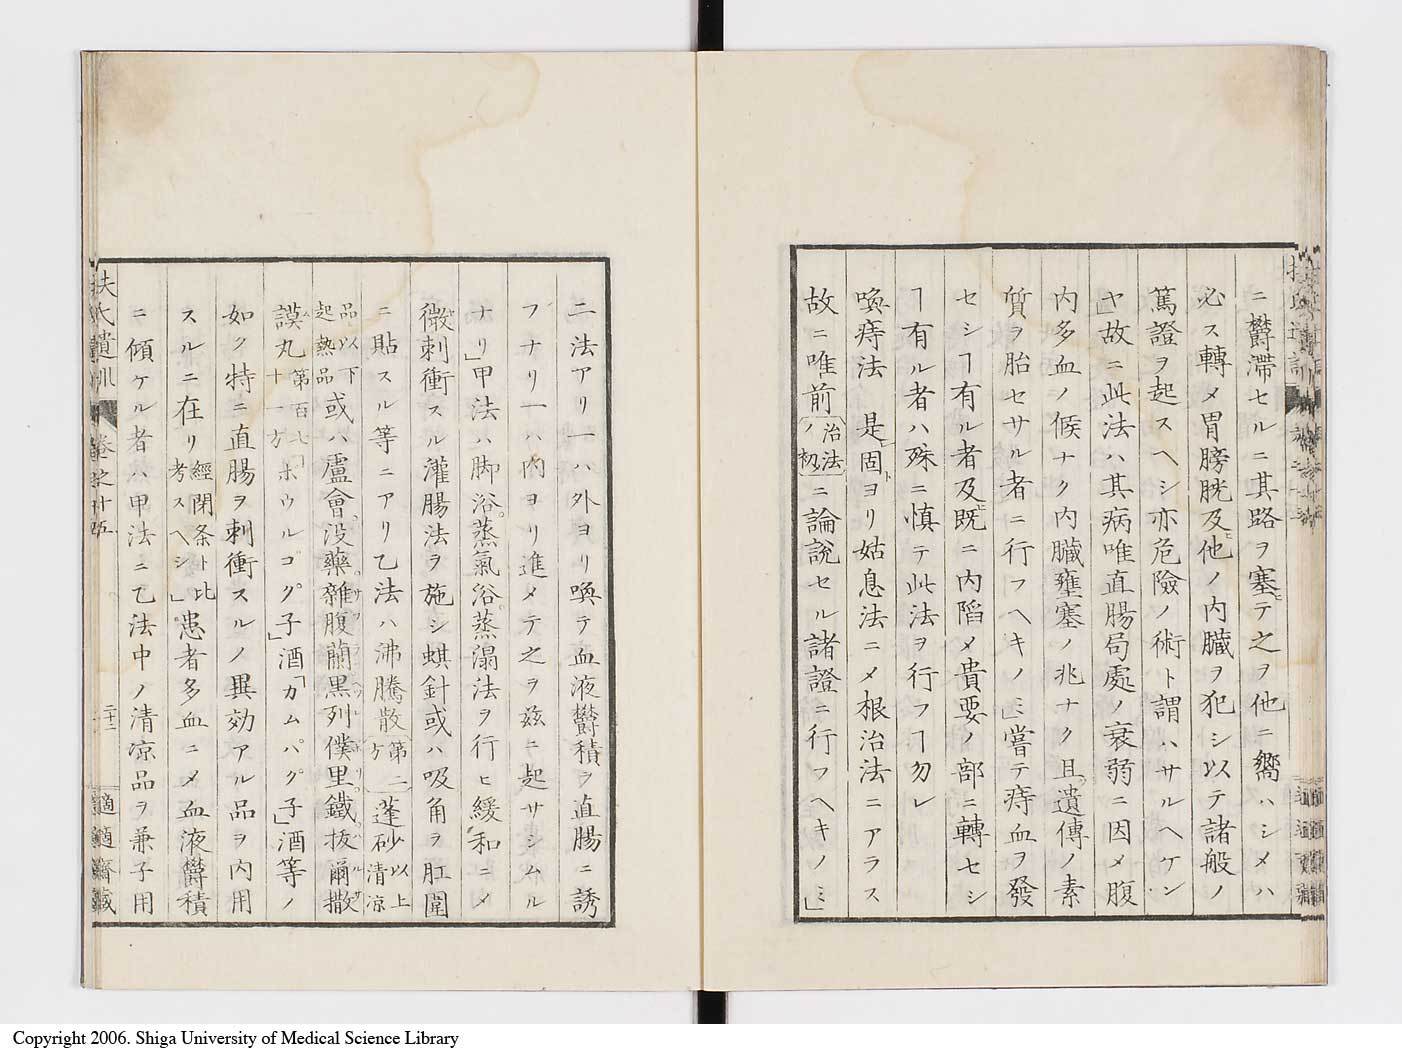 ニ欝滯セルニ其路ヲ塞テ之ヲ他ニ嚮ハシメハ
必ス轉メ胃膀胱及他ノ内臓ヲ犯シ以テ諸般ノ
篤證ヲ起スヘシ亦危險ノ術ト謂ハサルヘケン
ヤ」故ニ此法ハ其病唯直腸局處ノ衰弱ニ因メ腹
内多血ノ候ナク内臓壅塞ノ兆ナク且遺傳ノ素
質ヲ胎セサル者ニ行フヘキノミ」嘗テ痔血ヲ發
セシヿ有ル者及既ニ内陷メ貴要ノ部ニ轉セシ
ヿ有ル者ハ殊ニ慎テ此法ヲ行フヿ勿レ
喚痔法 是固ヨリ姑息法ニメ根治法ニアラス
故ニ唯前治法ノ初ニ論説セル諸證ニ行フヘキノミ」
二法アリ一ハ外ヨリ喚テ血液欝積ヲ直腸ニ誘
フナリ一ハ内ヨリ進メテ之ヲ玆ニ起サシムル
ナリ」甲法ハ脚浴蒸氣浴蒸溻法ヲ行ヒ緩和ニメ
微刺衝スル灌腸法ヲ施シ蜞針或ハ吸角ヲ肛圍
ニ貼スル等ニアリ乙法ハ沸騰散第二方蓬砂以上清凉
品以下起熱品或ハ盧會没藥雜腹蘭黒列僕里鐵抜爾撒
謨丸第百七十一方「ホウルゴク子」酒「カムパク子」酒等ノ
如ク特ニ直腸ヲ刺衝スルノ異効アル品ヲ内用
スルニ在リ經閉条ト比考スヘシ」患者多血ニメ血液欝積
ニ傾ケル者ハ甲法ニ乙法中ノ清凉品ヲ兼子用
扶氏遺訓 卷之十五 二十二 適適齋藏
Copyright 2006. Shiga University of Medical Science Library